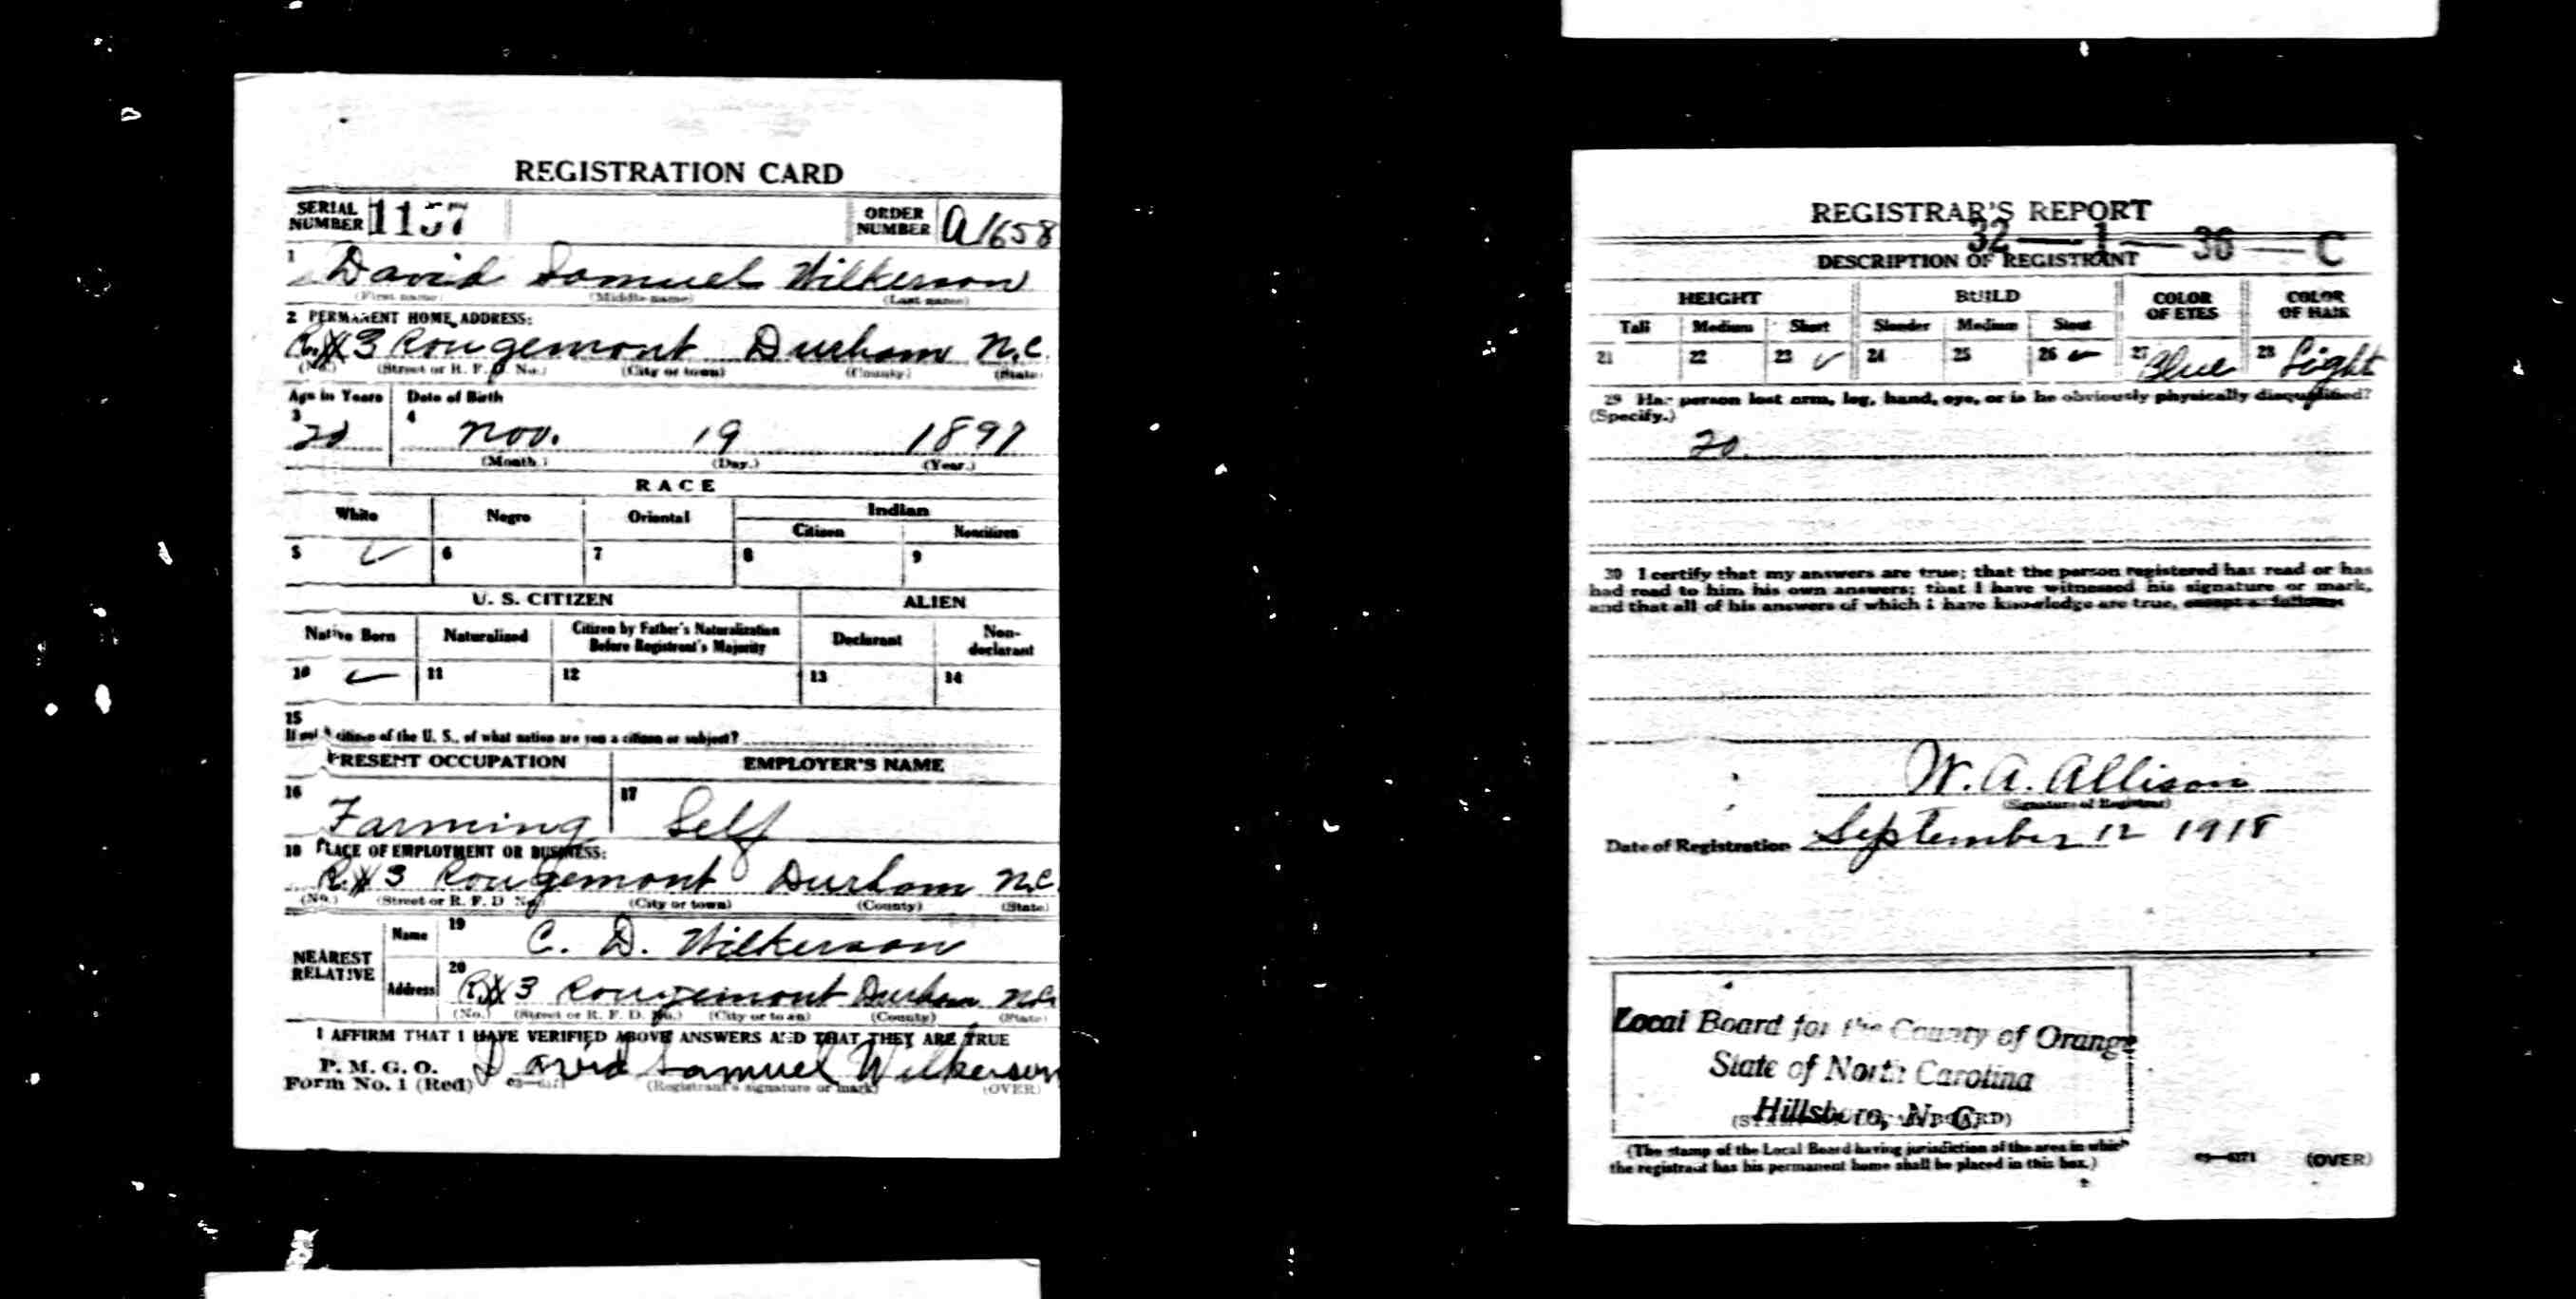 REGISTRATION CARD
SERIAL NUMBER 1157 ORDER NUMBER A1658
1 David Samuel Wilkerson
(First name) (Middle name) (Last name)
2 PERMANENT HOME ADDRESS:
R.#3 Rougemont Durham N.C.
(No.) (Street or R. F. D. No.) (City or town) (County) (State)
Age in Years Date of Birth
3 20 4 Nov. 19 1897
(Month.) (Day.) (Year.)
RACE
White Negro Oriental Indian
Citizen Noncitizen
5 ✓ 6 7 8 9
U. S. CITIZEN ALIEN
Native Born Naturalized Citizen by Father's Naturalization Before Registrant's Majority Declarant Non-declarant
10 ✓ 11 12 13 14
15
If not a citizen of the U. S., of what nation are you a citizen or subject?
PRESENT OCCUPATION EMPLOYER'S NAME
16 Farming 17 Self
18 PLACE OF EMPLOYMENT OR BUSINESS:
R.#3 Rougemont Durham N.C.
(No.) (Street or R. F. D. No.) (City or town) (County) (State)
NEAREST RELATIVE
Name 19 C. D. Wilkerson
Address 20 R.#3 Rougemont Durham N.C.
(No.) (Street or R. F. D. No.) (City or town) (County) (State)
I AFFIRM THAT I HAVE VERIFIED ABOVE ANSWERS AND THAT THEY ARE TRUE
P. M. G. O.
Form No. 1 (Red) David Samuel Wilkerson
(Registrant's signature or mark) (OVER)
REGISTRAR'S REPORT
32—1—36—C
DESCRIPTION OF REGISTRANT
HEIGHT BUILD COLOR OF EYES COLOR OF HAIR
Tall Medium Short Slender Medium Stout
21 22 23 ✓ 24 25 26 ✓ 27 Blue 28 Light
29 Has person lost arm, leg, hand, eye, or is he obviously physically disqualified?
(Specify.)
30 I certify that my answers are true; that the person registered has read or has
had read to him his own answers; that I have witnessed his signature or mark,
and that all of his answers of which I have knowledge are true, except as follows:
W. A. Allison
(Signature of Registrar)
Date of Registration September 12 1918
Local Board for the County of Orange
State of North Carolina
Hillsboro, N. C.
(The stamp of the Local Board having jurisdiction of the area in which
the registrant has his permanent home shall be placed in this box.)
03—6171 (OVER)